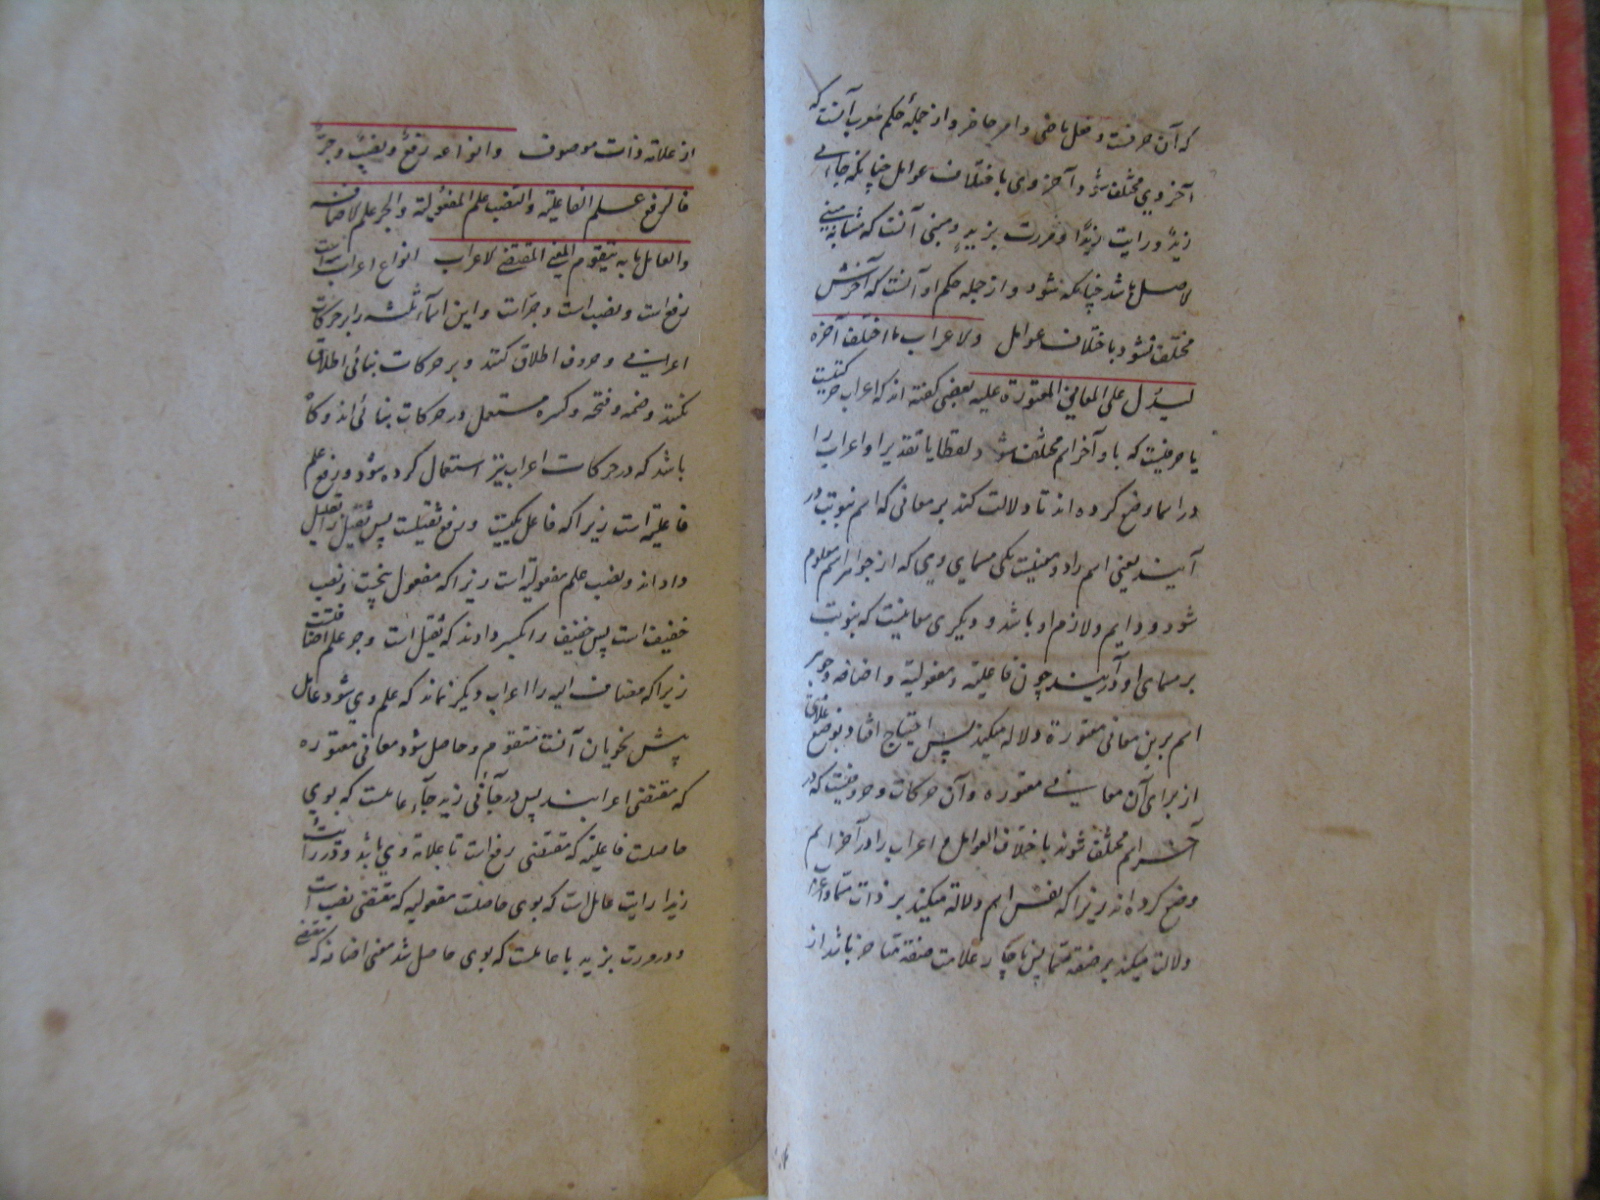 که آن حرفست و فعل ماضی و امر حاضر و از جملهٔ حکم معرب آنست که
آخر وی مختلف شود آخر وی باختلاف عوامل چنانکه جاءنی
زیدٌ و رایت زیدًا و مررت بزیدٍ و مبنی آنست که مشابه مبنی
لاصل باشد چنانکه نشود و از جمله حکم او آنست که آخرش
مختلف نشود باختلاف عوامل ولاعراب ما اختلف آخره
لیدل علی المعانی المعتورة علیه بعضی گفته اند که اعراب حرکتیست
یا حرفیست که باو آخر اسم مختلف شود لفظا یا تقدیرا و اعراب را
در اسما وضع کرده اند تا دلالت کند بر معانی که اسم بنوبت در
آیند یعنی اسم را دو معنیست یکی مسمای وی که از جوهر اسم معلوم
شود و دایم و لازم او باشد و دیگری معانیست که بنوبت
بر مسمای او در آیند چون فاعلیة و مفعولیة و اضافه و جوهر
اسم برین معانی معتورة دلاله نمیکند پس احتیاج افتاد بوضع علاماتی
از برای آن معانی معتوره و آن حرکات و حروفیست که در
آخر اسم مختلف شوند باختلاف العوامل و اعراب را در آخر اسم
وضع کرده اند زیرا که نفس اسم دلالة میکند بر ذات مسما و اعراب
دلالت میکند بر صفة مسما پس ناچار علامت صفة متاخر باشد از
از علامة ذات موصوف وانواعه رفعٌ ونصبٌ وجرٌّ
فالرفع علم الفاعلیة والنصب علم المفعولیة والجر علم لاضافة
والعامل ما به یتقوم المعنی المقتضی لاعراب انواع اعراب سه است
رفع است و نصب است و جر است و این اسماء ثلثه را بر حرکات
اعرابی و حروف اطلاق کنند و بر حرکات بنائی اطلاق
نکنند و ضمه و فتحه و کسره مستعمل در حرکات بنائی اند و گاه
باشد که در حرکات اعراب نیز استعمال کرده شود و رفع علم
فاعلیة است زیرا که فاعل یکیست و رفع ثقیلست پس ثقیل را بقلیل
داد اند و نصب علم مفعولیة است زیرا که مفعول پنجست و نصب
خفیف است پس خفیف را بکثیر دادند که ثقیل است و جر علم اضافتست
زیرا که مضاف الیه را اعراب دیگر نماند که علم وی شود عامل
پیش نحویان آنست متقوم و حاصل شود معانی معتوره
که مقتضی اعرابند پس در جاءنی زید جاء عاملست که بوی
حاصلست فاعلیة که مقتضی رفع است تا علامة وی باشد و در رایت
زیدا رایت عامل است که بوی حاصلست مفعولیه که مقتضی نصب است
و در مررت بزید با عاملست که بوی حاصل شد معنی اضافه که مقتضی